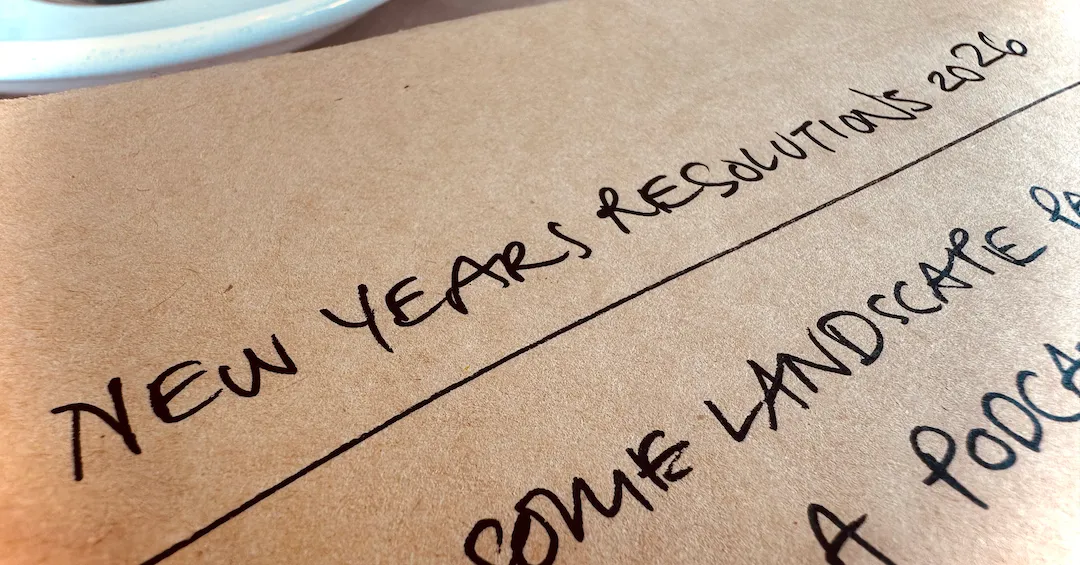 NEW YEARS RESOLUTIONS 2026
SOME LANDSCAPE
A